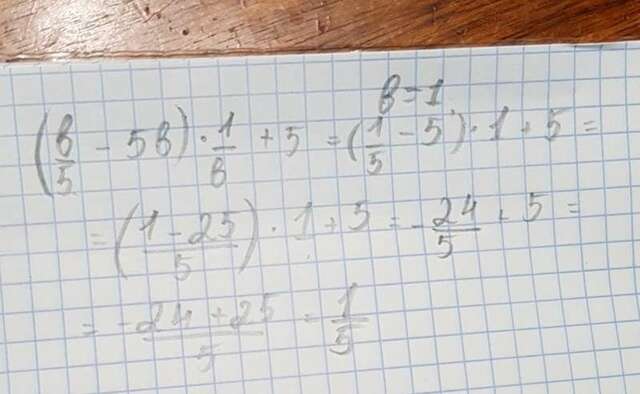 в = 1
(в/5 - 5в) · 1/в + 5 = (1/5 - 5) · 1 + 5 =
= (1 - 25/5) · 1 + 5 = - 24/5 + 5 =
= - 24 + 25/5 = 1/5